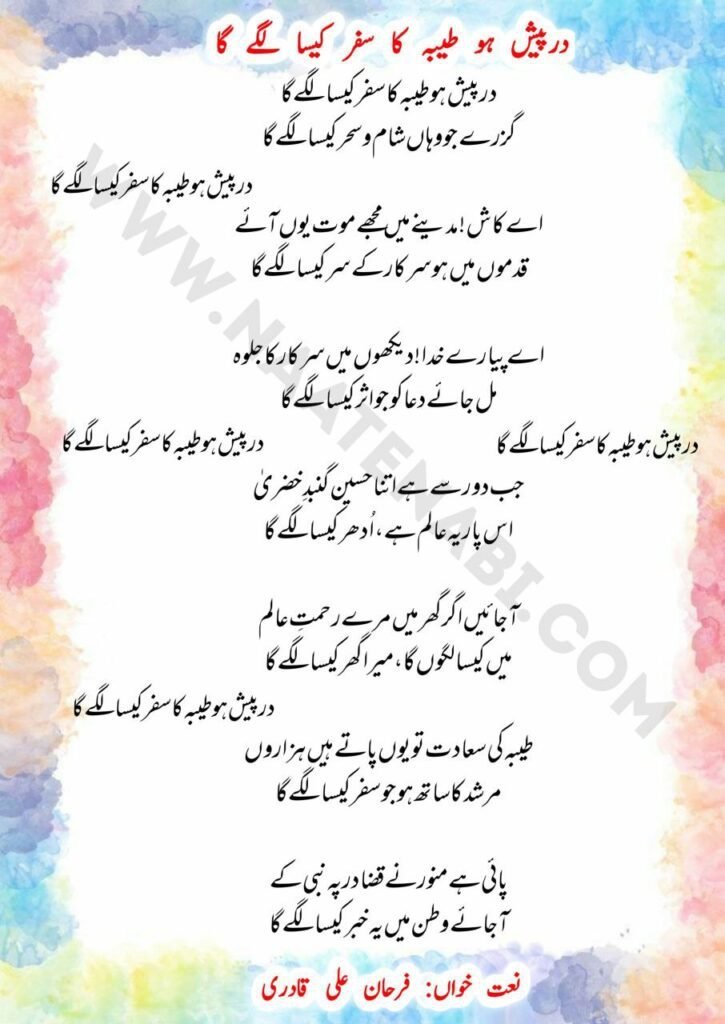 درپیش ہو طیبہ کا سفر کیسا لگے گا
درپیش ہو طیبہ کا سفر کیسا لگے گا
گزرے جو وہاں شام و سحر کیسا لگے گا
درپیش ہو طیبہ کا سفر کیسا لگے گا
اے کاش! مدینے میں مجھے موت یوں آئے
قدموں میں ہو سرکار کے سر کیسا لگے گا
اے پیارے خدا! دیکھوں میں سرکار کا جلوہ
مل جائے دعا کو جو اثر کیسا لگے گا
درپیش ہو طیبہ کا سفر کیسا لگے گا
درپیش ہو طیبہ کا سفر کیسا لگے گا
جب دور سے ہے اتنا حسین گنبدِ خضریٰ
اس پار یہ عالم ہے ، اُدھر کیسا لگے گا
آجائیں اگر گھر میں مرے رحمتِ عالم
میں کیسا لگوں گا، میرا گھر کیسا لگے گا
درپیش ہو طیبہ کا سفر کیسا لگے گا
طیبہ کی سعادت تو یوں پاتے ہیں ہزاروں
مرشد کا ساتھ ہو جو سفر کیسا لگے گا
پائی ہے منور نے قضا در پہ نبی کے
آجائے وطن میں یہ خبر کیسا لگے گا
نعت خواں: فرحان علی قادری
WWW.NAATENABI.COM